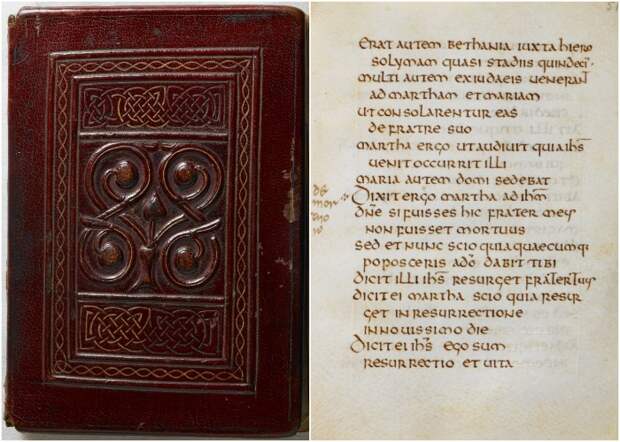 erat autem bethania iuxta hiero
solymam quasi stadiis quindeci·
multi autem exiudaeis uenerant
ad martham et mariam
ut consolarentur eas
de fratre suo
martha ergo ut audiuit quia ih̄s
uenit occurrit illi
maria autem domi sedebat
Dixit ergo martha ad ih̄m
dn̄e si fuisses hic frater meus
non fuisset mortuus
sed et nunc scio quia quaecumq·
poposceris ad̄o dabit tibi
dicit illi ih̄s resurget frater tuus
dicit ei martha scio quia resur
get in resurrectione
in nouissimo die
Dicit ei ih̄s ego sum
resurrectio et uita
de
mor